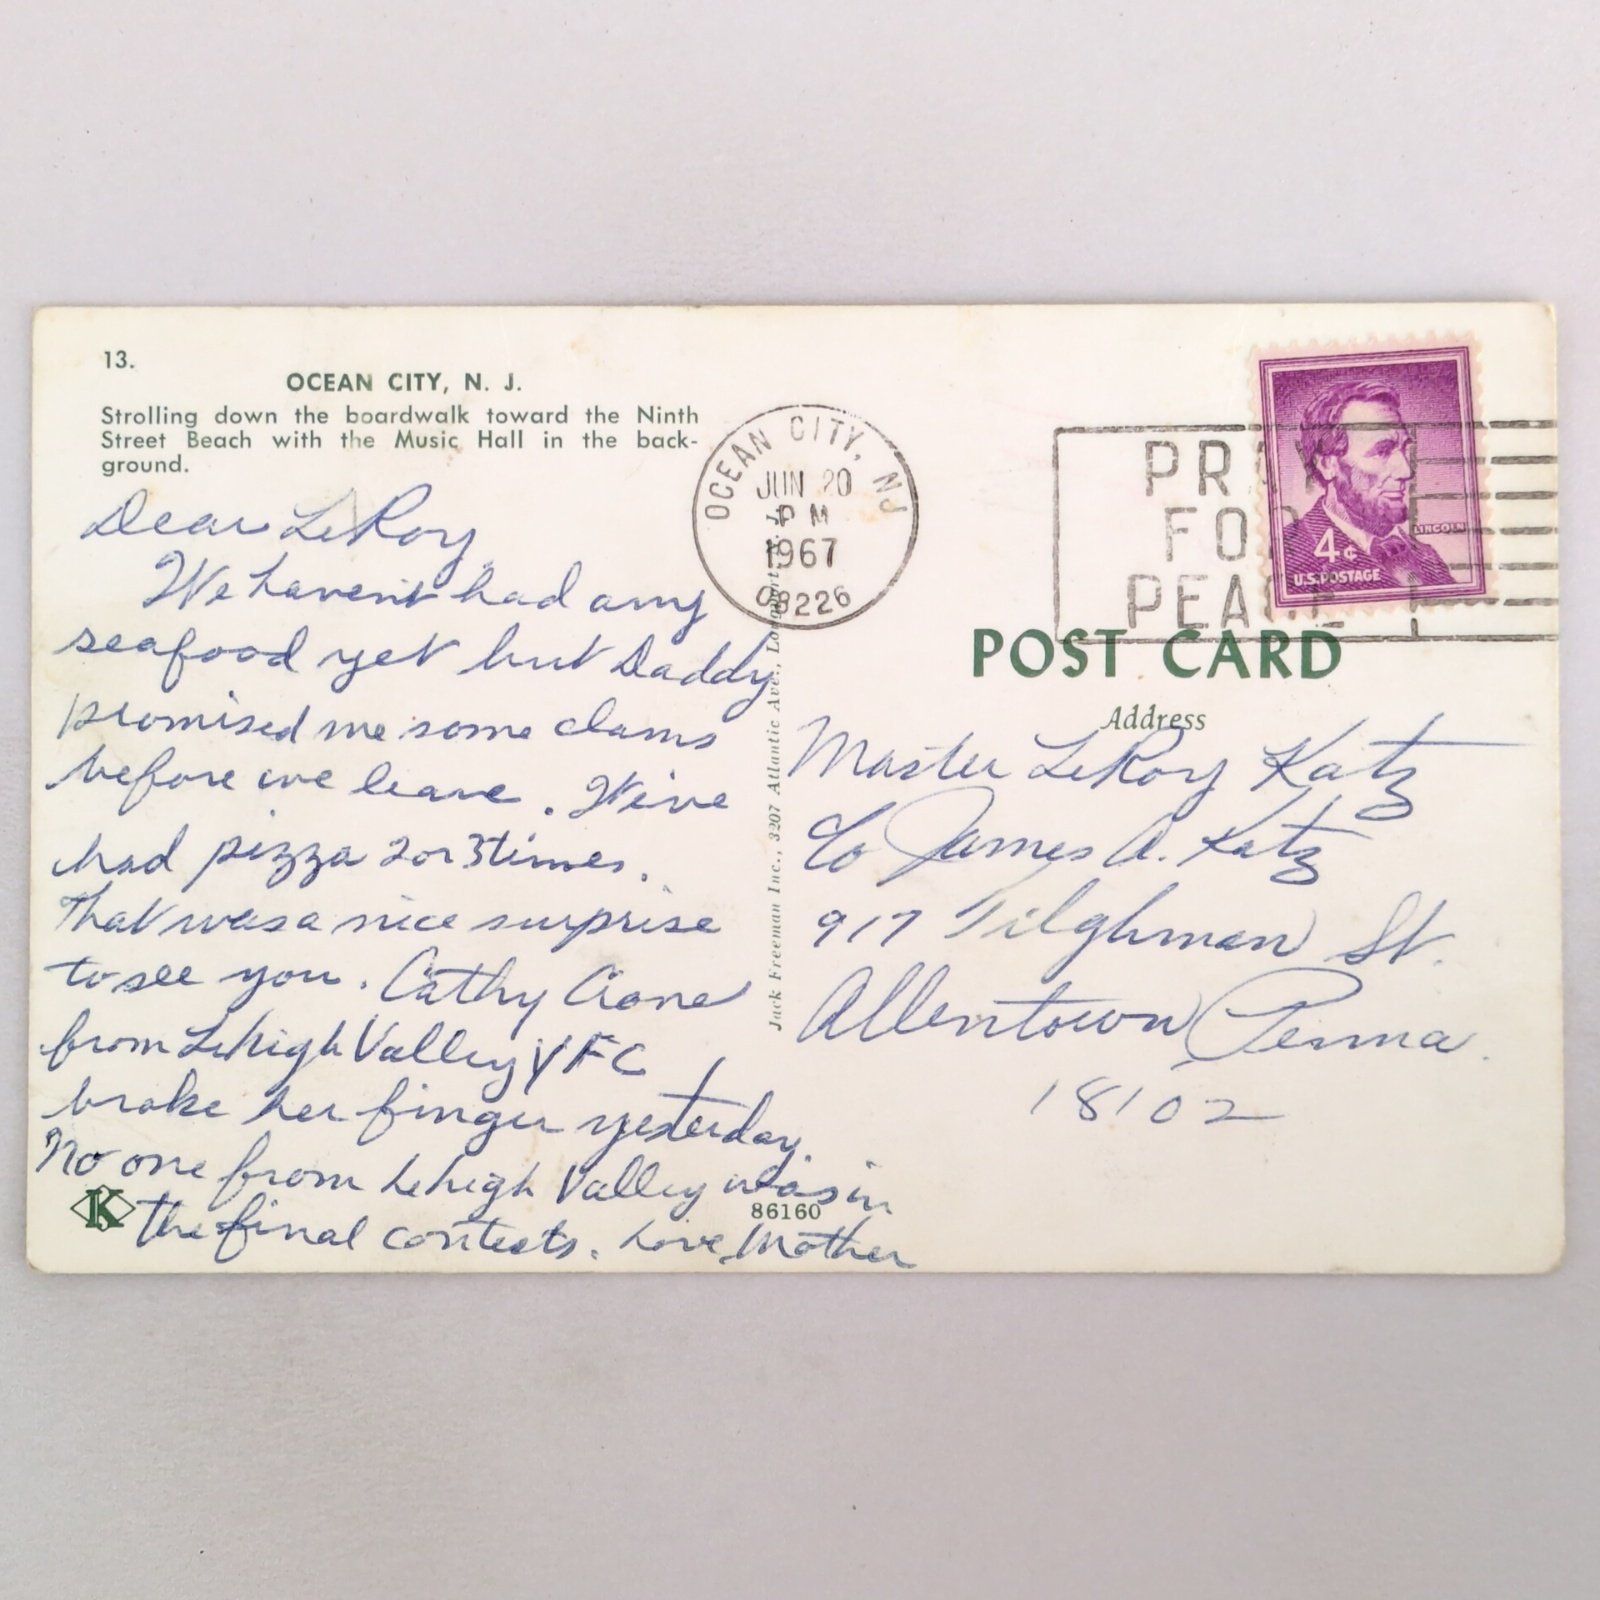 13.
OCEAN CITY, N. J.
Strolling down the boardwalk toward the Ninth
Street Beach with the Music Hall in the back-
ground.
Dear LeRoy,
We haven't had any
seafood yet but Daddy
promised me some clams
before we leave. We've
had pizza 2 or 3 times.
That was a nice surprise
to see you. Cathy
from Lehigh Valley YFC
broke her finger yesterday.
No one from Lehigh Valley was in
the final contests. Love, Mother
K
86160
Jack Freeman Inc., 3207 Atlantic Ave., Longport, N. J.
OCEAN CITY, NJ
JUN 20
PM
1967
08226
PRAY
FOR
PEACE
LINCOLN
4¢
U.S. POSTAGE
POST CARD
Address
Master LeRoy Katz
c/o James A. Katz
917 Tilghman St.
Allentown, Penna.
18102